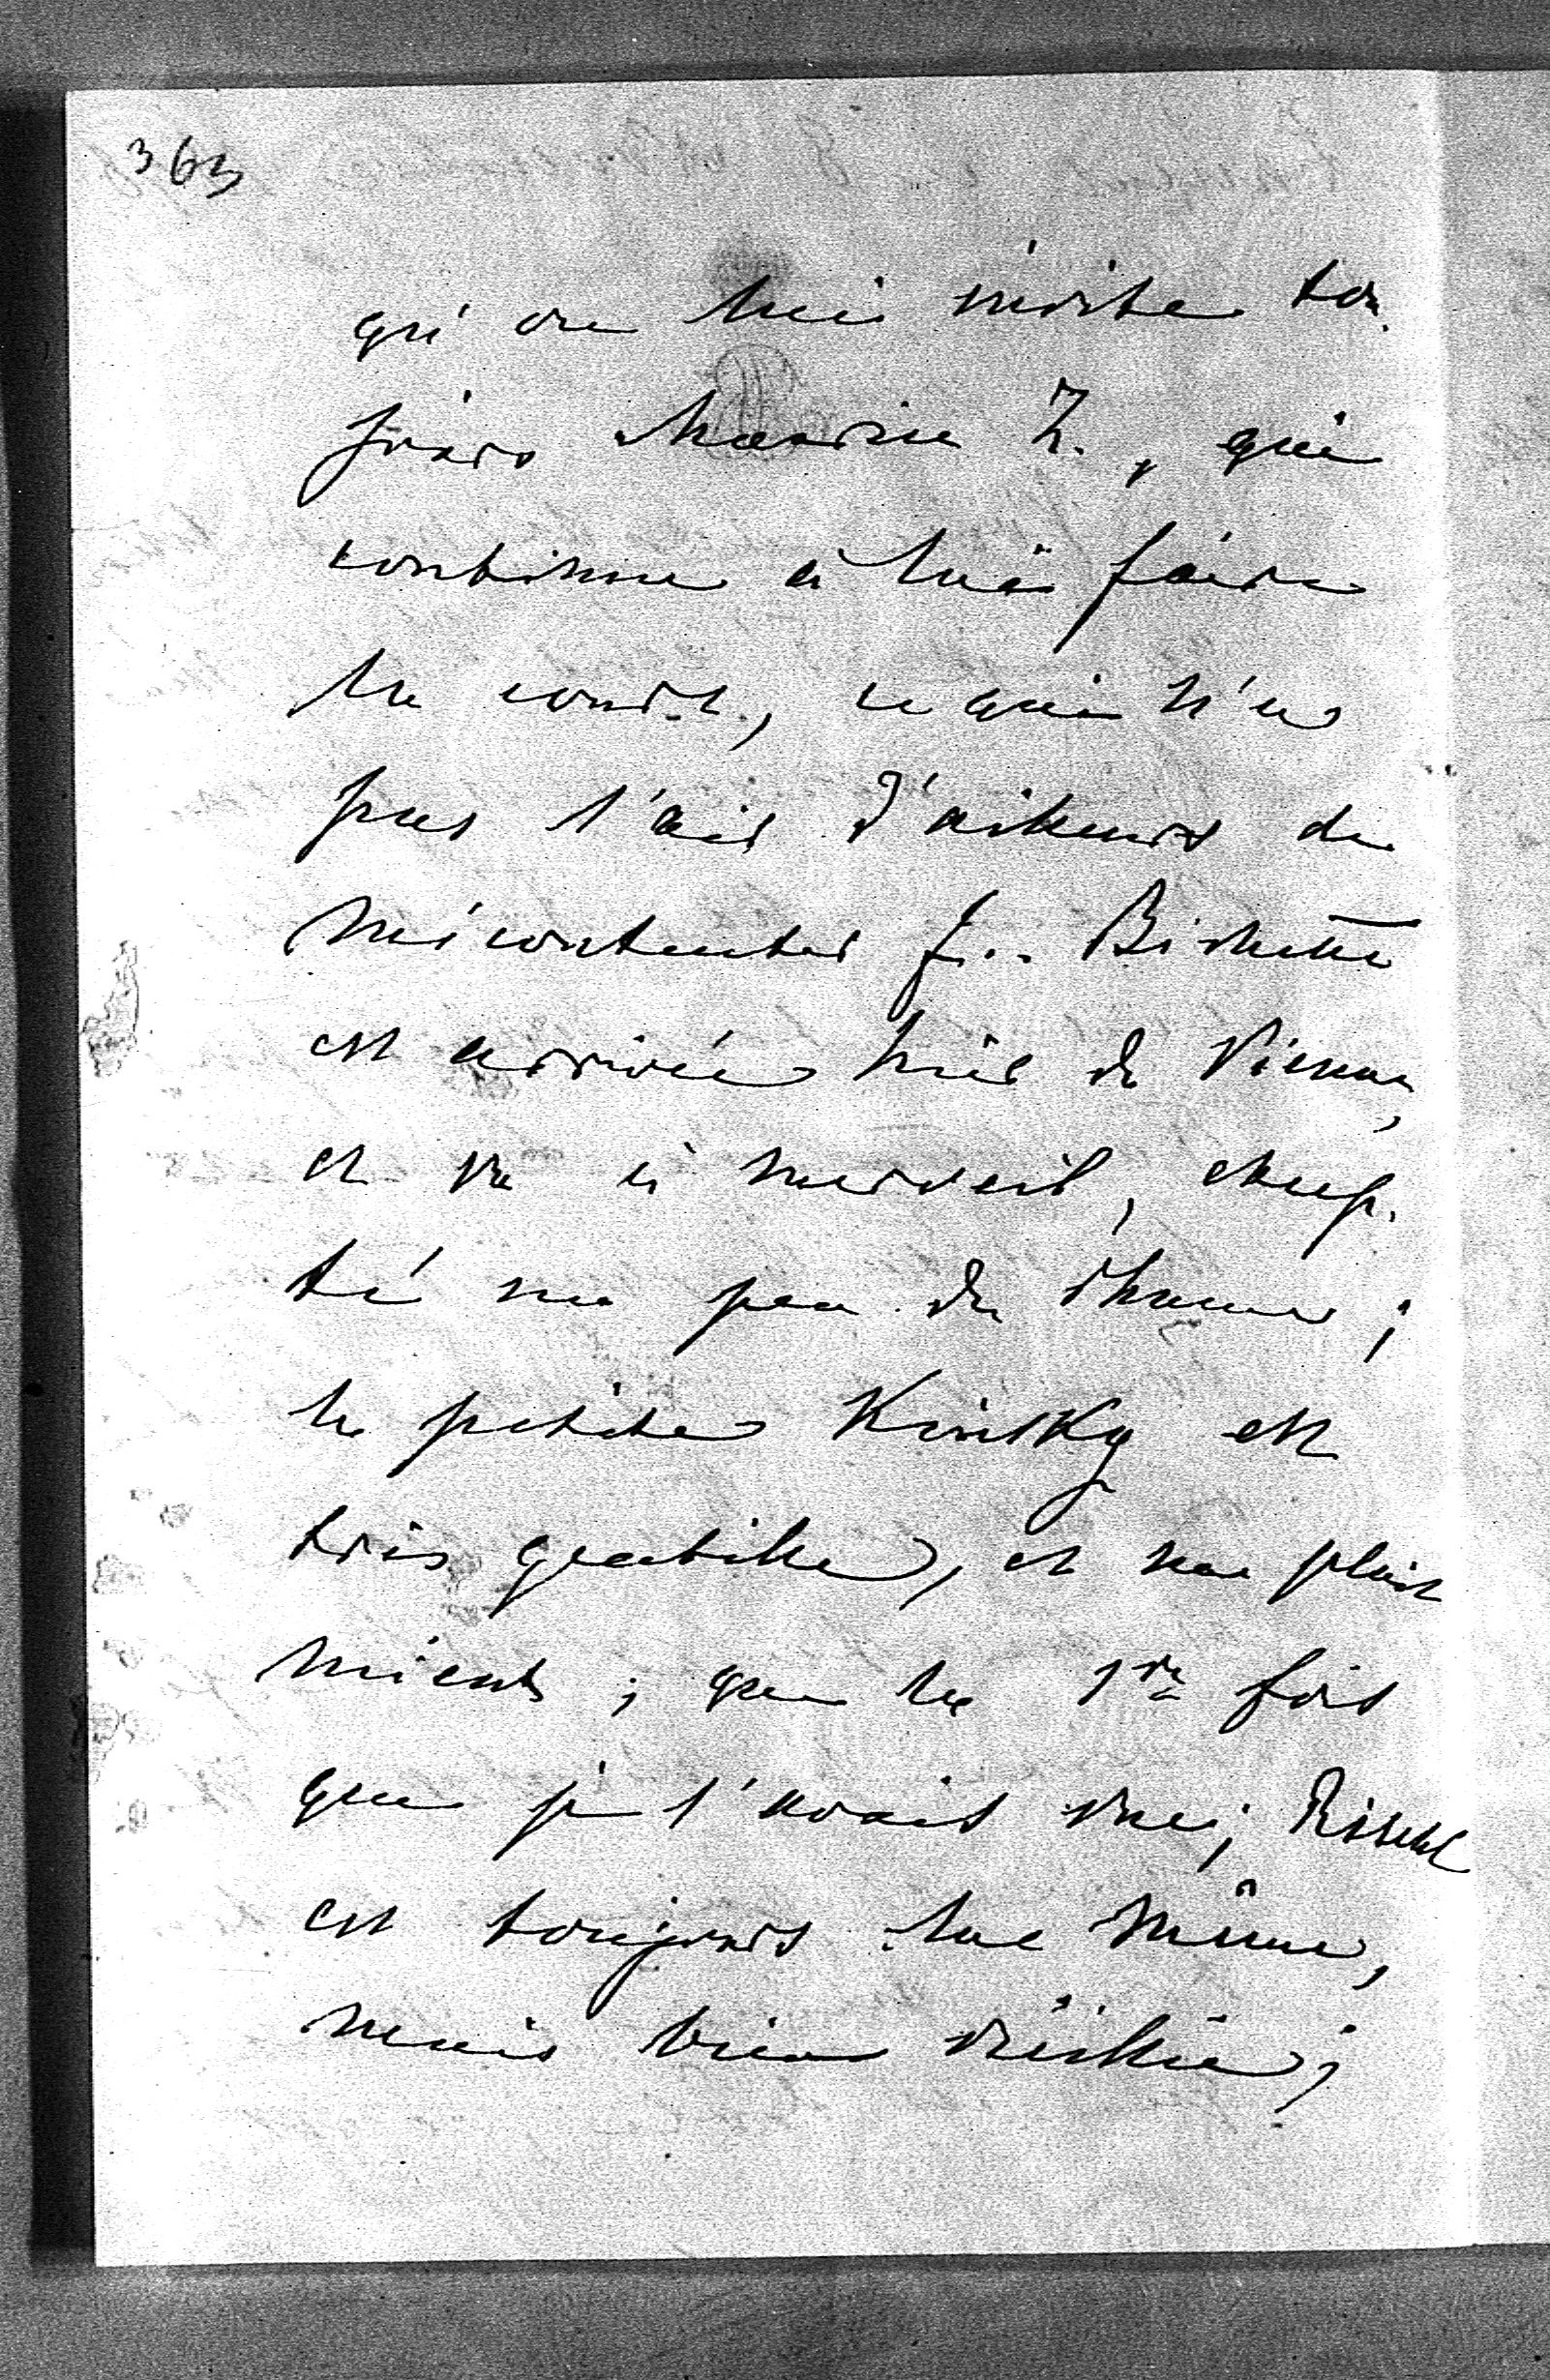 363
qu'on lui invite tou.
jours Maurice Z., qui
continue à lui faire
la court, ce qui n'a
pas l'air d'aileurs de
mécontenter f.. Bichette
est arrivée hier de Vienne,
et va à merveil, excep.
té un peu de rhume;
la petite Kinsky est
très gentille, et me plait
mieux; que la 1re fois
que je l'avait vue;
est toujours la même,
mais bien vieillie;